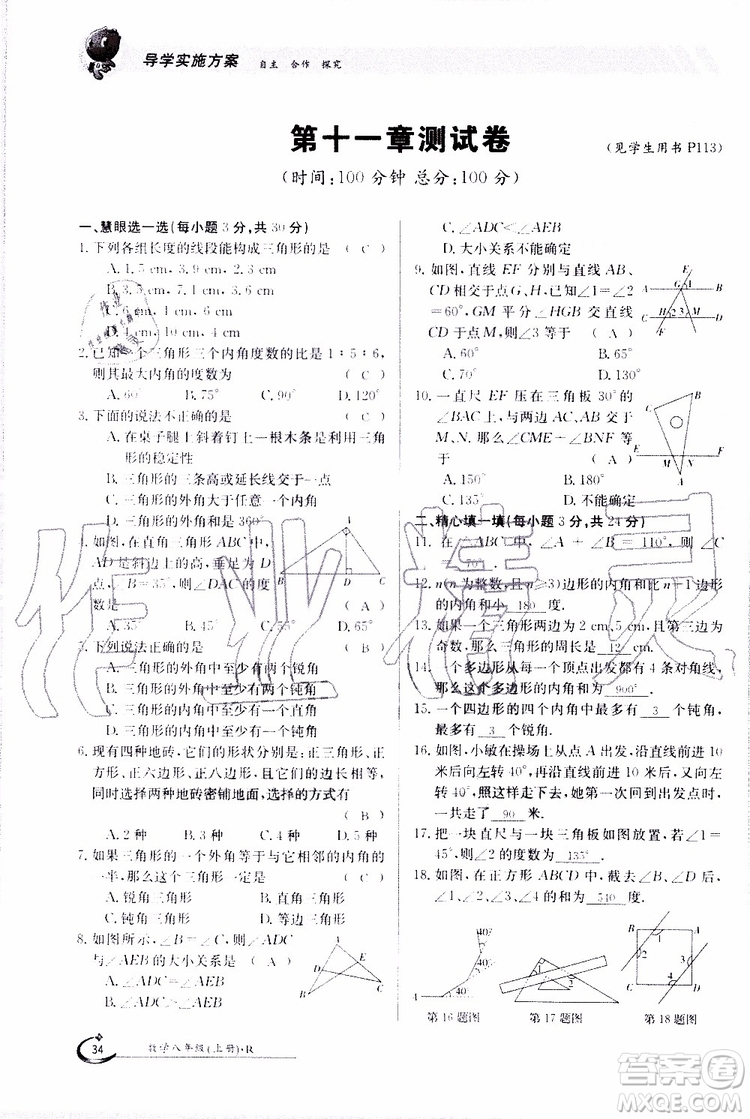 导学实施方案 自主 合作 探究
第十一章测试卷
(见学生用书 P113)
(时间:100 分钟 总分:100 分)
一、慧眼选一选(每小题 3 分,共 30 分)
1. 下列各组长度的线段能构成三角形的是 ( C )
A. 1.5 cm,3.9 cm,2.3 cm
2. 已知一个三角形三个内角度数的比是 1∶5∶6,
则其最大内角的度数为 ( C )
A. 60° B. 75° C. 90° D. 120°
3. 下面的说法不正确的是 ( C )
A. 在桌子腿上斜着钉上一根木条是利用三角
形的稳定性
B. 三角形的三条高或延长线交于一点
C. 三角形的外角大于任意一个内角
D. 三角形的外角和是 360°
4. 如图,在直角三角形 ABC 中,
AD 是斜边上的高,垂足为 D
点,∠B=35°,则∠DAC 的度
数是 ( A )
A. 35° B. 45° C. 55° D. 65°
5. 下列说法正确的是 ( C )
A. 三角形的内角中至少有两个锐角
B. 三角形的内角中至少有两个钝角
C. 三角形的内角中至少有一个直角
6. 现有四种地砖,它们的形状分别是:正三角形、正
方形、正六边形、正八边形,且它们的边长都相
等,同时选择两种地砖密铺地面,选择的方式有
( B )
A. 2 种 B. 3 种 C. 4 种 D. 5 种
7. 如果三角形的一个外角等于与它相邻的内角的
一半,那么这个三角形是 ( C )
A. 锐角三角形 B. 直角三角形
C. 钝角三角形 D. 等边三角形
8. 如图所示,∠B=∠C,则∠ADC
与∠AEB 的大小关系是 ( A )
A. ∠ADC=∠AEB
B. ∠ADC>∠AEB
C. ∠ADC<∠AEB
D. 大小关系不能确定
9. 如图,直线 EF 分别与直线 AB、
CD 相交于点 G、H,已知∠1=∠2
=60°,GM 平分∠HGB 交直线
CD 于点 M,则∠3 等于 ( A )
A. 60° B. 65°
C. 70° D. 130°
10. 一直尺 EF 压在三角板 30°的
∠BAC 上,与两边 AC、AB 交于
M、N. 那么∠CME+∠BNF 等
于 ( A )
A. 150° B. 180°
C. 135° D. 不能确定
二、精心填一填(每小题 3 分,共 24 分)
11. 在△ABC 中,∠A+∠B=110°,则∠C
= 70° .
12. n(n 为整数,且 n≥3)边形的内角和比 n-1 边形
的内角和小 180 度.
13. 如果一个三角形两边为 2 cm,5 cm,且第三边为
奇数,则三角形的周长是 12 cm.
14. 一个多边形从每一个顶点出发都有 4 条对角线,
那么这个多边形的内角和为 900° .
15. 一个四边形的四个内角中最多有 3 个钝角,
最多有 3 个锐角.
16. 如图,小敏在操场上从点 A 出发,沿直线前进 10
米后向左转 40°,再沿直线前进 10 米后,又向左
转 40°,……,照这样走下去,她第一次回到点 A,
一共走了 90 米.
17. 把一块直尺与一块三角板如图放置,若∠1=
45°,则∠2 的度数为 135° .
18. 如图,一个正方形 ABCD 中,截去∠B、∠D 后,
∠1、∠2、∠3、∠4 的和为 540 度.
第 16 题图 第 17 题图 第 18 题图
34 数学八年级(上册)·R
作业精灵